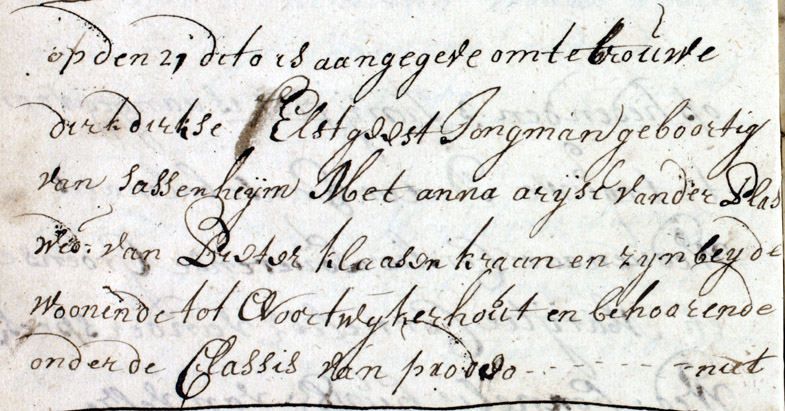 op den 21 dito is aangegeve om te trouwe
dirk dirkse Elstgeest Jongman geboortig
van Sassenheijm Met anna arijse vander Plas
Wed: van Pieter klaasen kraan en zijn beyde
woonende tot Noortwijkerhout en behoorende
onder de Classis van pro deo - - - - - - niet